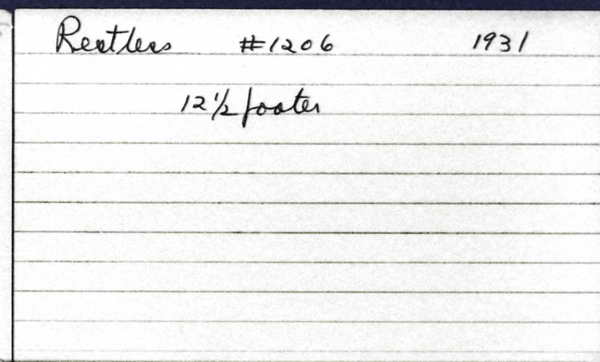 Restless #1206 1931
12 1/2 footer